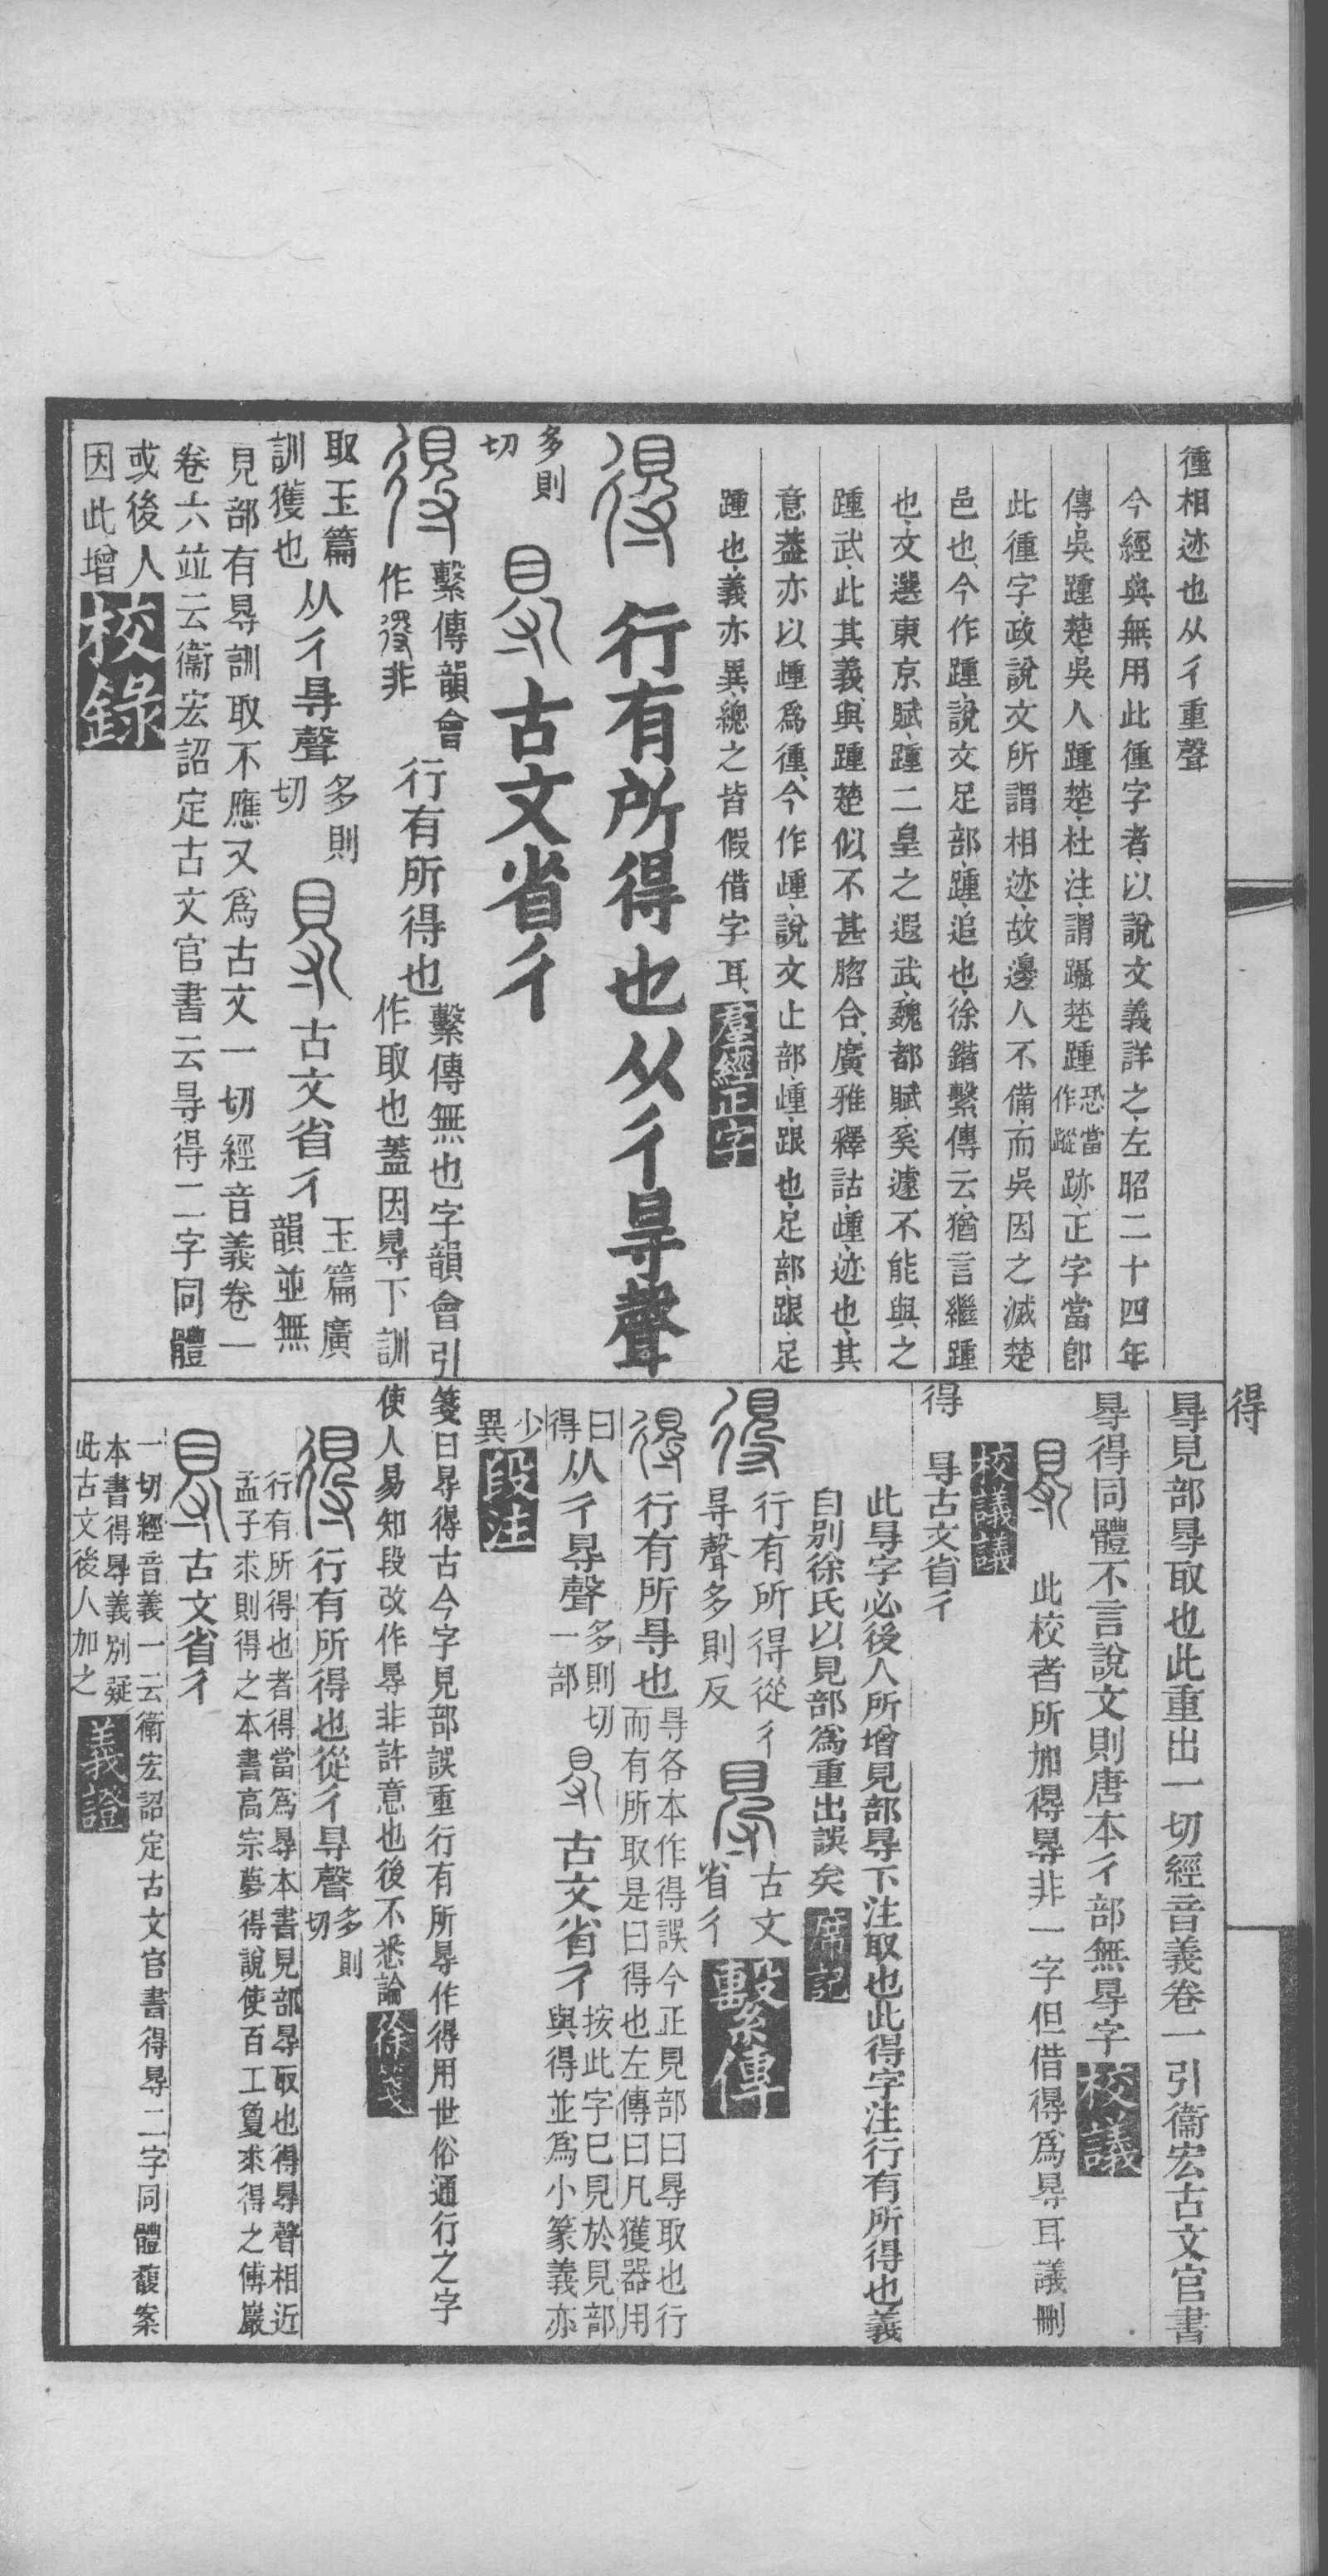 得
徸相迹也从彳重聲
今經典無用此徸字者以說文義詳之左昭二十四年
傳吳踵楚吳人踵楚杜注謂躡楚踵恐當作蹤跡正字當卽
此徸字政說文所謂相迹故邊人不備而吳因之滅楚
邑也今作踵說文足部踵追也徐鍇繫傳云猶言繼踵
也文選東京賦踵二皇之遐武魏都賦奚遽不能與之
踵武此其義與踵楚似不甚脗合廣雅釋詁歱迹也其
意葢亦以歱爲徸今作歱說文止部歱跟也足部跟足
踵也義亦異總之皆假借字耳羣經正字
行有所得也从彳㝵聲
多則切
古文省彳
繫傳韻會作㝵非行有所得也繫傳無也字韻會引作取也蓋因㝵下訓
取玉篇訓獲也从彳㝵聲多則切古文省彳玉篇廣韻並無
見部有㝵訓取不應又爲古文一切經音義卷一
卷六竝云衞宏詔定古文官書云㝵得二字同體
或後人因此增校錄
㝵見部㝵取也此重出一切經音義卷一引衞宏古文官書
㝵得同體不言說文則唐本彳部無㝵字校議
此校者所加得㝵非一字但借得爲㝵耳議刪
校議議
得㝵古文省彳
此㝵字必後人所增見部㝵下注取也此得字注行有所得也義
自別徐氏以見部爲重出誤矣席記
行有所得從彳㝵聲多則反古文省彳繫傳
行有所㝵也㝵各本作得誤今正見部曰㝵取也行而有所取是曰得也左傳曰凡獲器用
曰得从彳㝵聲多則切一部古文省彳按此字巳見於見部與得並爲小篆義亦
少異段注
箋曰㝵得古今字見部誤重行有所㝵作得用世俗通行之字
使人易知段改作㝵非許意也後不悉論徐箋
行有所得也從彳㝵聲多則切
行有所得也者得當爲㝵本書見部㝵取也得㝵聲相近
孟子求則得之本書高宗夢得說使百工敻求得之傅巖
古文省彳
一切經音義一云衞宏詔定古文官書得㝵二字同體馥案
本書得㝵義別疑
此古文後人加之義證